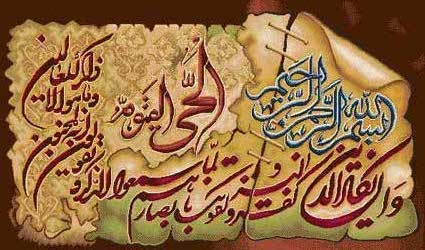 بسم الله الرحمن الرحيم
الحي القيوم
وان يكاد الذين كفروا ليزلقونك بابصارهم لما سمعوا الذكر
ويقولون انه لمجنون
وما هو الا
ذكر للعالمين